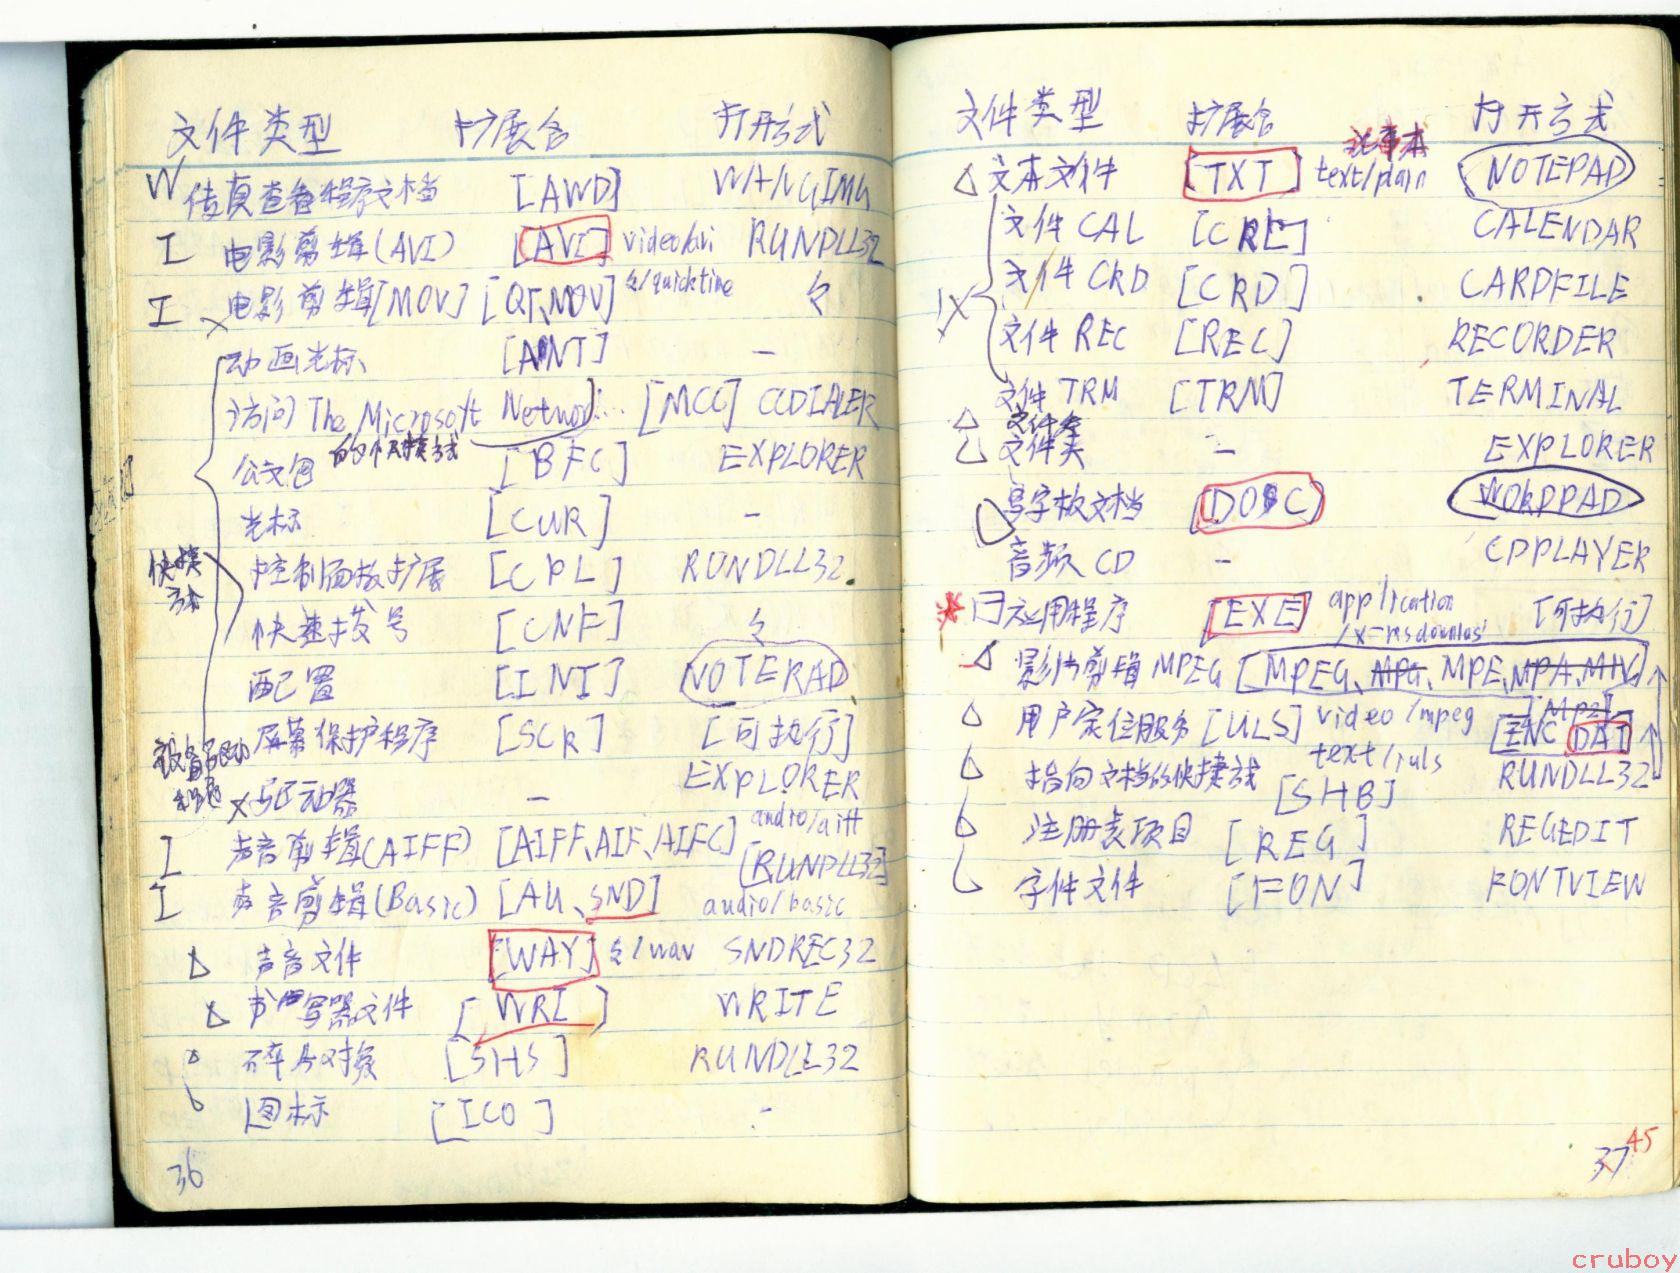 文件类型 扩展含 打开方式
W 传真查看程序文档 [AWD] WANGIMG
I 电影剪辑(AVI) [AVI] video/avi RUNDLL32
I 电影剪辑[MOV] [QT、MOV] 々/quicktime 々
动画光标 [ANI] —
访问 The Microsoft Networ... [MCC] CCDIALER
的快捷方式
公文包 [BFC] EXPLORER
光标 [CUR] —
快捷方式
控制面板扩展 [CPL] RUNDLL32
快速拨号 [CNF] 々
配置 [INI] NOTEPAD
屏幕保护程序 [SCR] [可执行]
设备驱动程序
X 驱动器 — EXPLORER
I 声音剪辑(AIFF) [AIFF、AIF、AIFC] audio/aiff [RUNDLL32]
I 声音剪辑(Basic) [AU、SND] audio/basic
声音文件 [WAV] 々/wav SNDREC32
书写器文件 [WRI] WRITE
碎片对象 [SHS] RUNDLL32
图标 [ICO] -
36
文件类型 扩展含 打开方式
记事本
文本文件 [TXT] text/plain NOTEPAD
文件 CAL [CAL] CALENDAR
文件 CRD [CRD] CARDFILE
文件 REC [REC] RECORDER
文件 TRM [TRM] TERMINAL
文件夹
文件夹 — EXPLORER
写字板文档 [DOC] WORDPAD
音频 CD — CDPLAYER
应用程序 [EXE] application/x-msdownload [可执行]
影片剪辑 MPEG [MPEG、MPG、MPE、MPA、M1V
video/mpeg [MP2]
用户定位服务 [ULS] text/iuls [ENC DAT]
指向文档的快捷方式 [SHB] RUNDLL32
注册表项目 [REG] REGEDIT
字体文件 [FON] FONTVIEW
37 45
cruboy